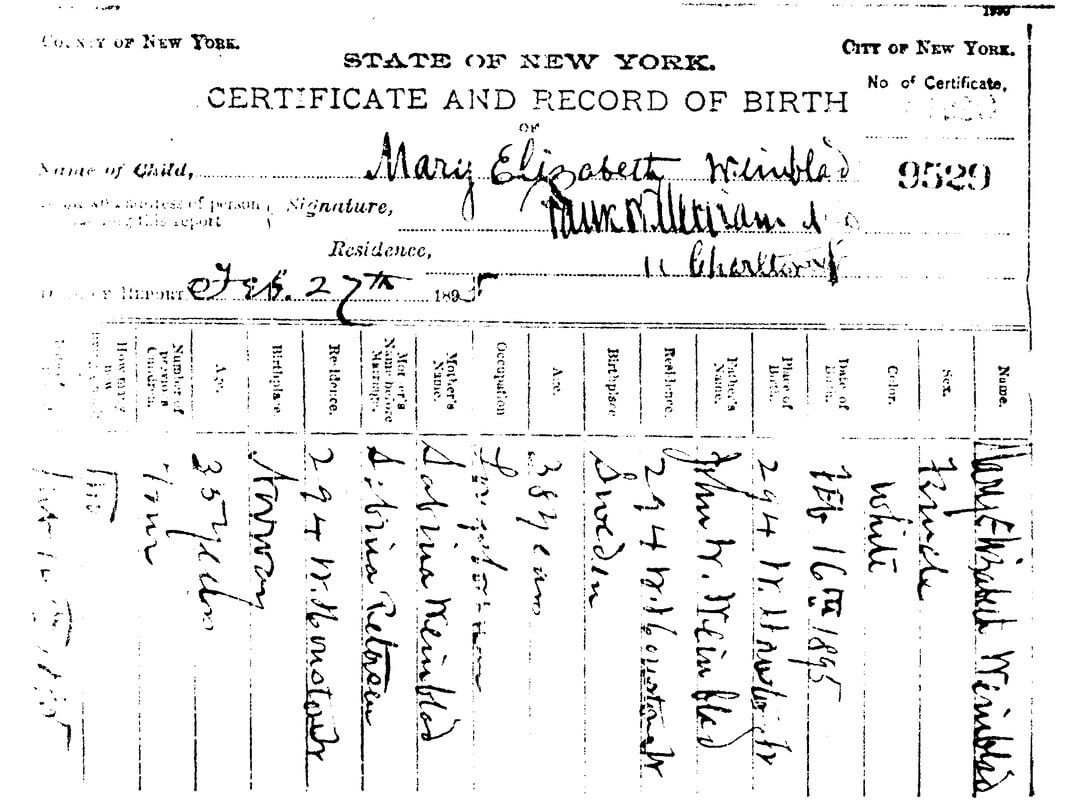 COUNTY OF NEW YORK.
CITY OF NEW YORK.
STATE OF NEW YORK.
No of Certificate,
CERTIFICATE AND RECORD OF BIRTH
OF
9529
Name of Child, Mary Elizabeth Weinblad
of person Signature,
this report
Residence, 11 Charlton St
OF REPORT Feb. 27th 1895
Name. Mary Elizabeth Weinblad
Sex. Female
Color. White
Date of Birth. Feb 16th 1895
Place of Birth. 294 W. Houston St
Father's Name. John W. Weinblad
Residence. 294 W. Houston St
Birthplace Sweden
Age. 38 years
Occupation Longshoreman
Mother's Name. Sabina Weinblad
Mother's Name before Marriage. Sabina Petersen
Residence. 294 W. Houston St
Birthplace. Norway
Age. 35 years
Number of previous Children. Four
How many now